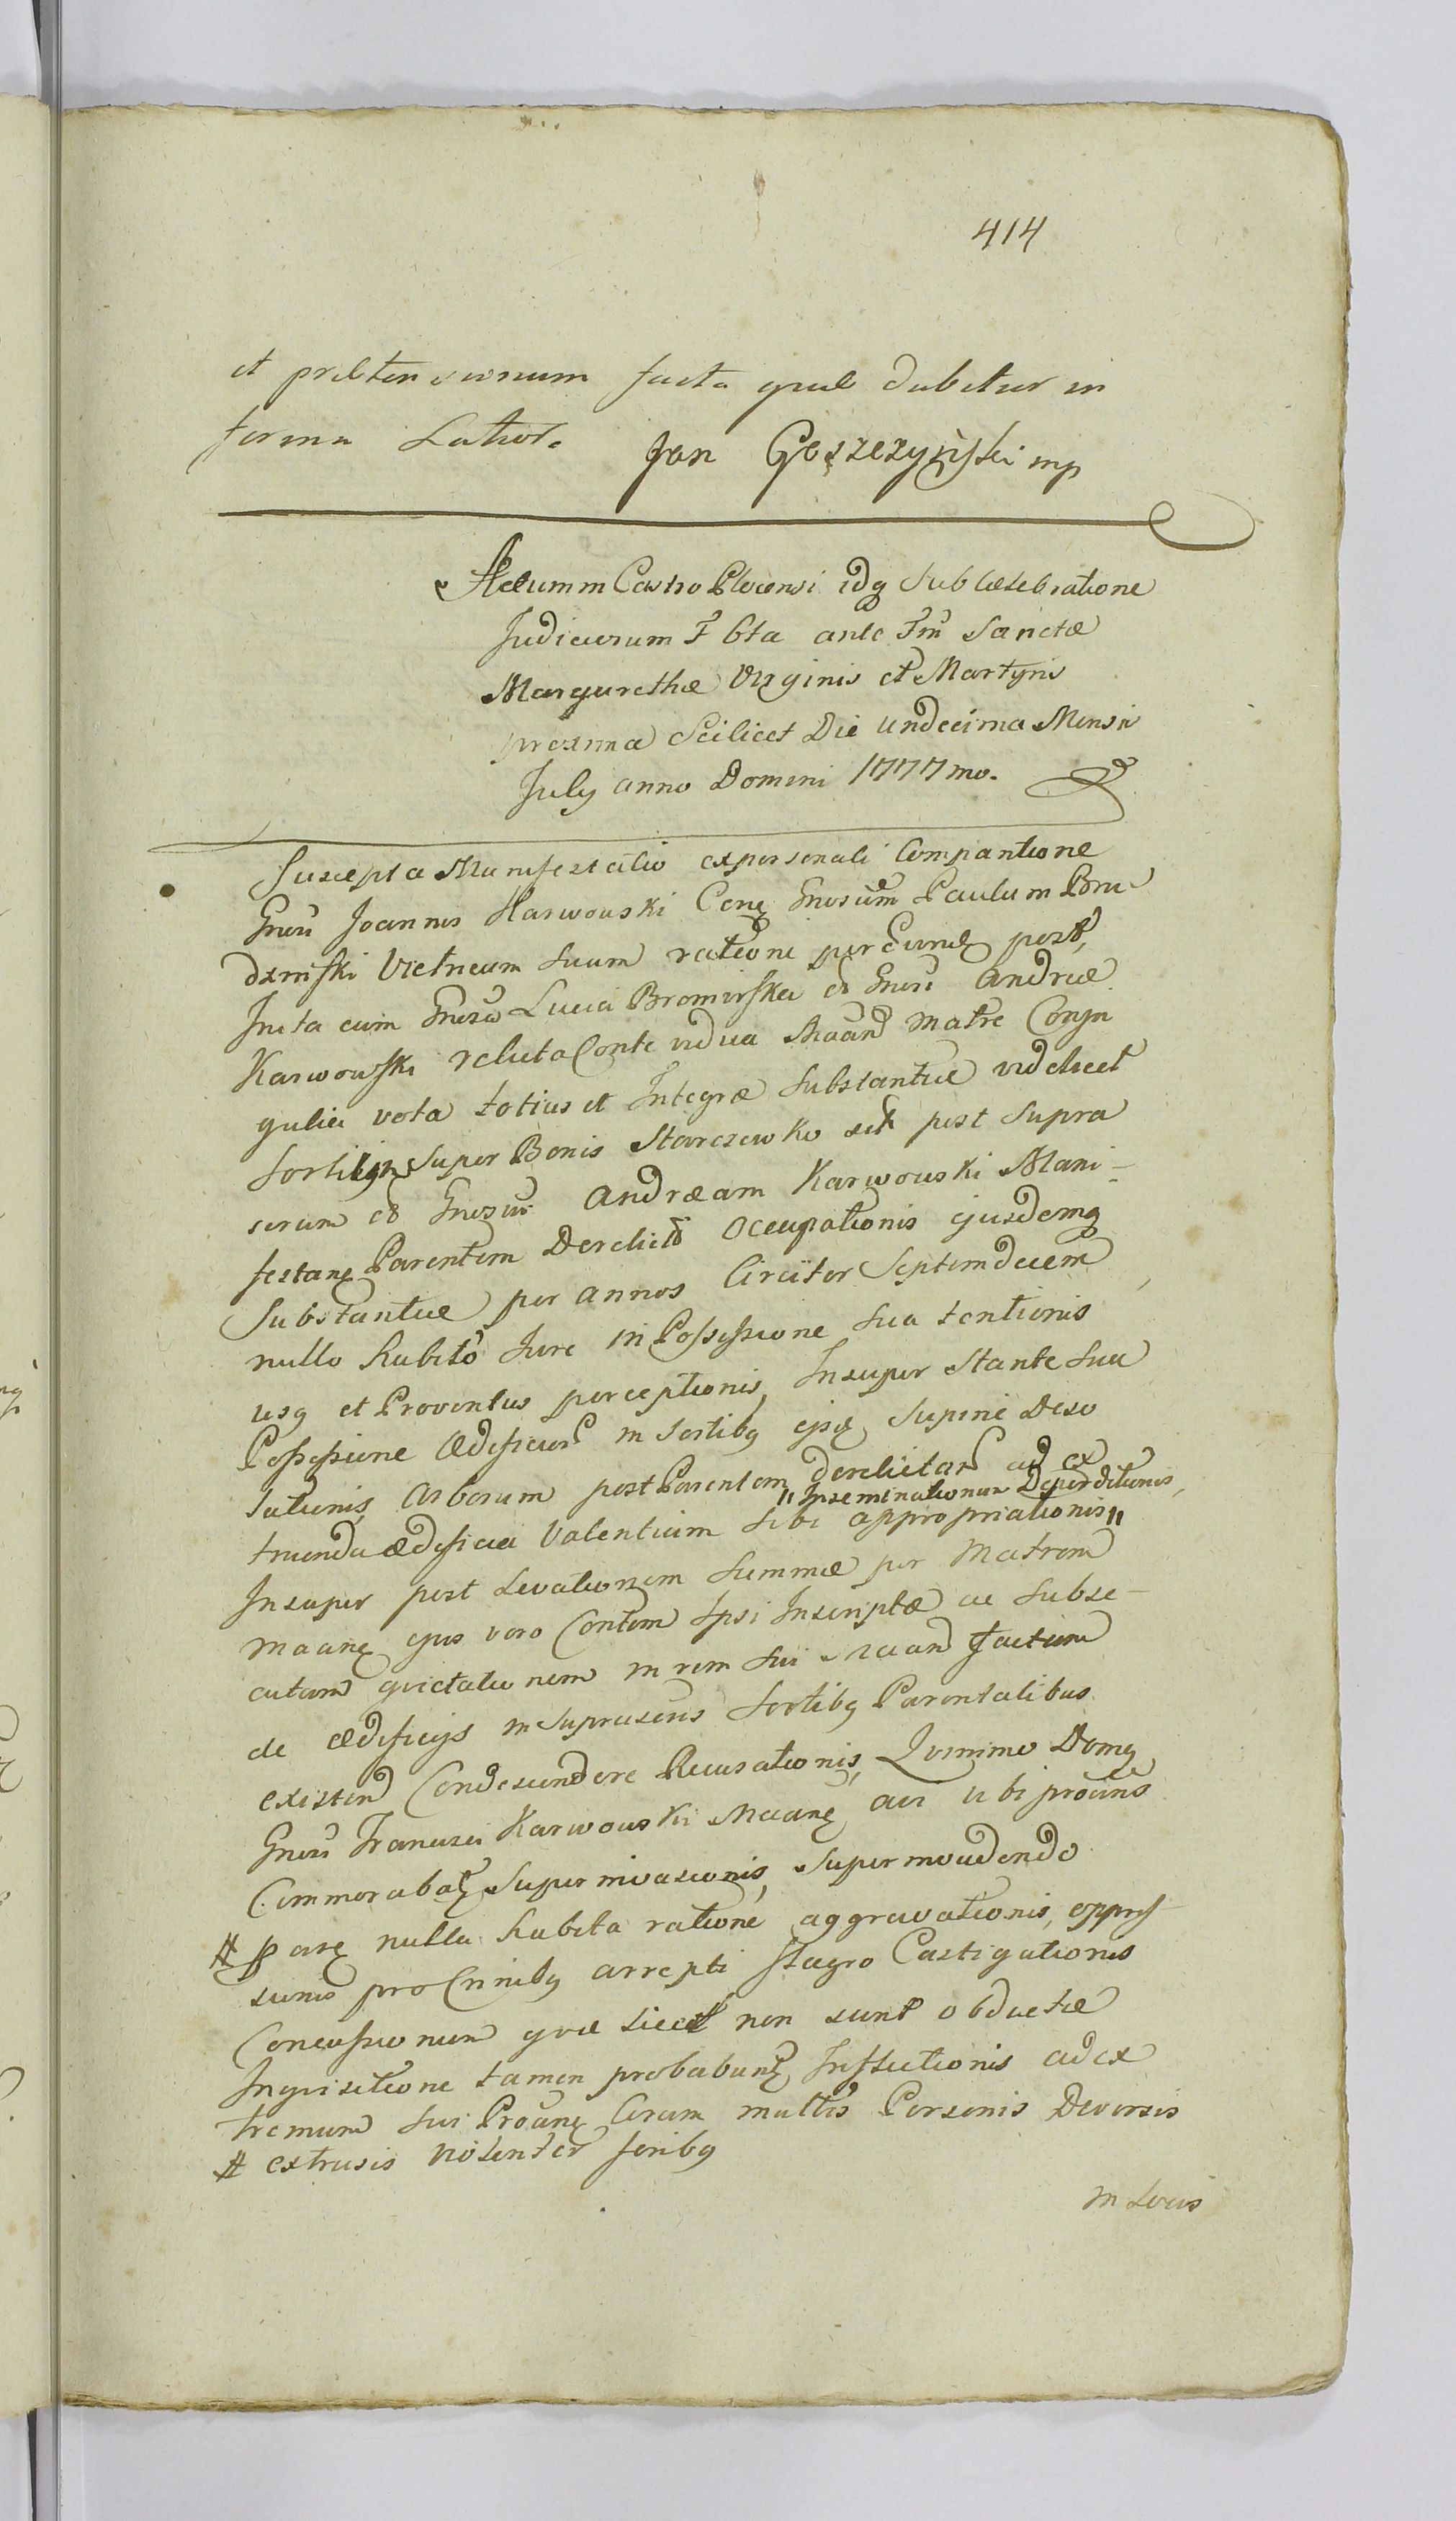 414
et prætensionum facta quæ dabitur in
forma Latiori Jan Goszczyński mp
Actum in Castro Plocensi idq sub Celebratione
Judiciorum F Sbta ante Fm Sanctæ
Margarethæ Virginis et Martyris
proxima Scilicet Die Undecima Mensis
July anno Domini 1777mo.
Suscepta Manifestatio ex personali Compantione
Gnosi Joannis Karwowski Conę Gnosum Paulum Bru-
dziński Vitricum suum ratione per eundę post
Inita cum Gnosa Lucia Bromirska et Gnosi Andreæ
Karwowski relicta Conte vidua Maand Matre Conju
galia vota totius et Integræ substantiæ videlicet
sortium super Bonis Starczewko sett post supra
scrum et Gnosum Andream Karwowski Mani-
festanę Parentem Derelictæ Occupationis ejusdemq
Substantiæ per annos Circiter Septemdecem
nullo habito Jure in Possessione sua tentionis
usq et Proventus perceptionis, Insuper stante sua
Possessione Ædificior in sortibq ejsd supine Deso
lationis, arborum post Parentem derelictar ad ex
"Inseminationum Deperditionis,
truenda ædificia Valentium sibi appropriationis"
Insuper post Levationem summæ per Matrem
Maanę ejus vero Contem Ipsi Inscriptæ ac subse-
cutam quietationem in rem sui Maan factam
de ædificijs in suprascris sortibq Parentalibus
existen Condescendere Recusationis, Quinimo Domq
Gnosi Francisci Karwowski Maanę avi ubi proūns
Commorabatz Superinvasionis, Superinvadendo
# parę nulla habita ratione aggravationis, oppres
sionis pro Crinibq arrepti flagro Castigationis
Concussionum quæ licet non sunt obductæ
Inquisitione tamen probabuntz Inflictionis ad ex
tremum sui Proūnę Coram multis Personis Diversis
# extrusis violenter foribq
in Locis